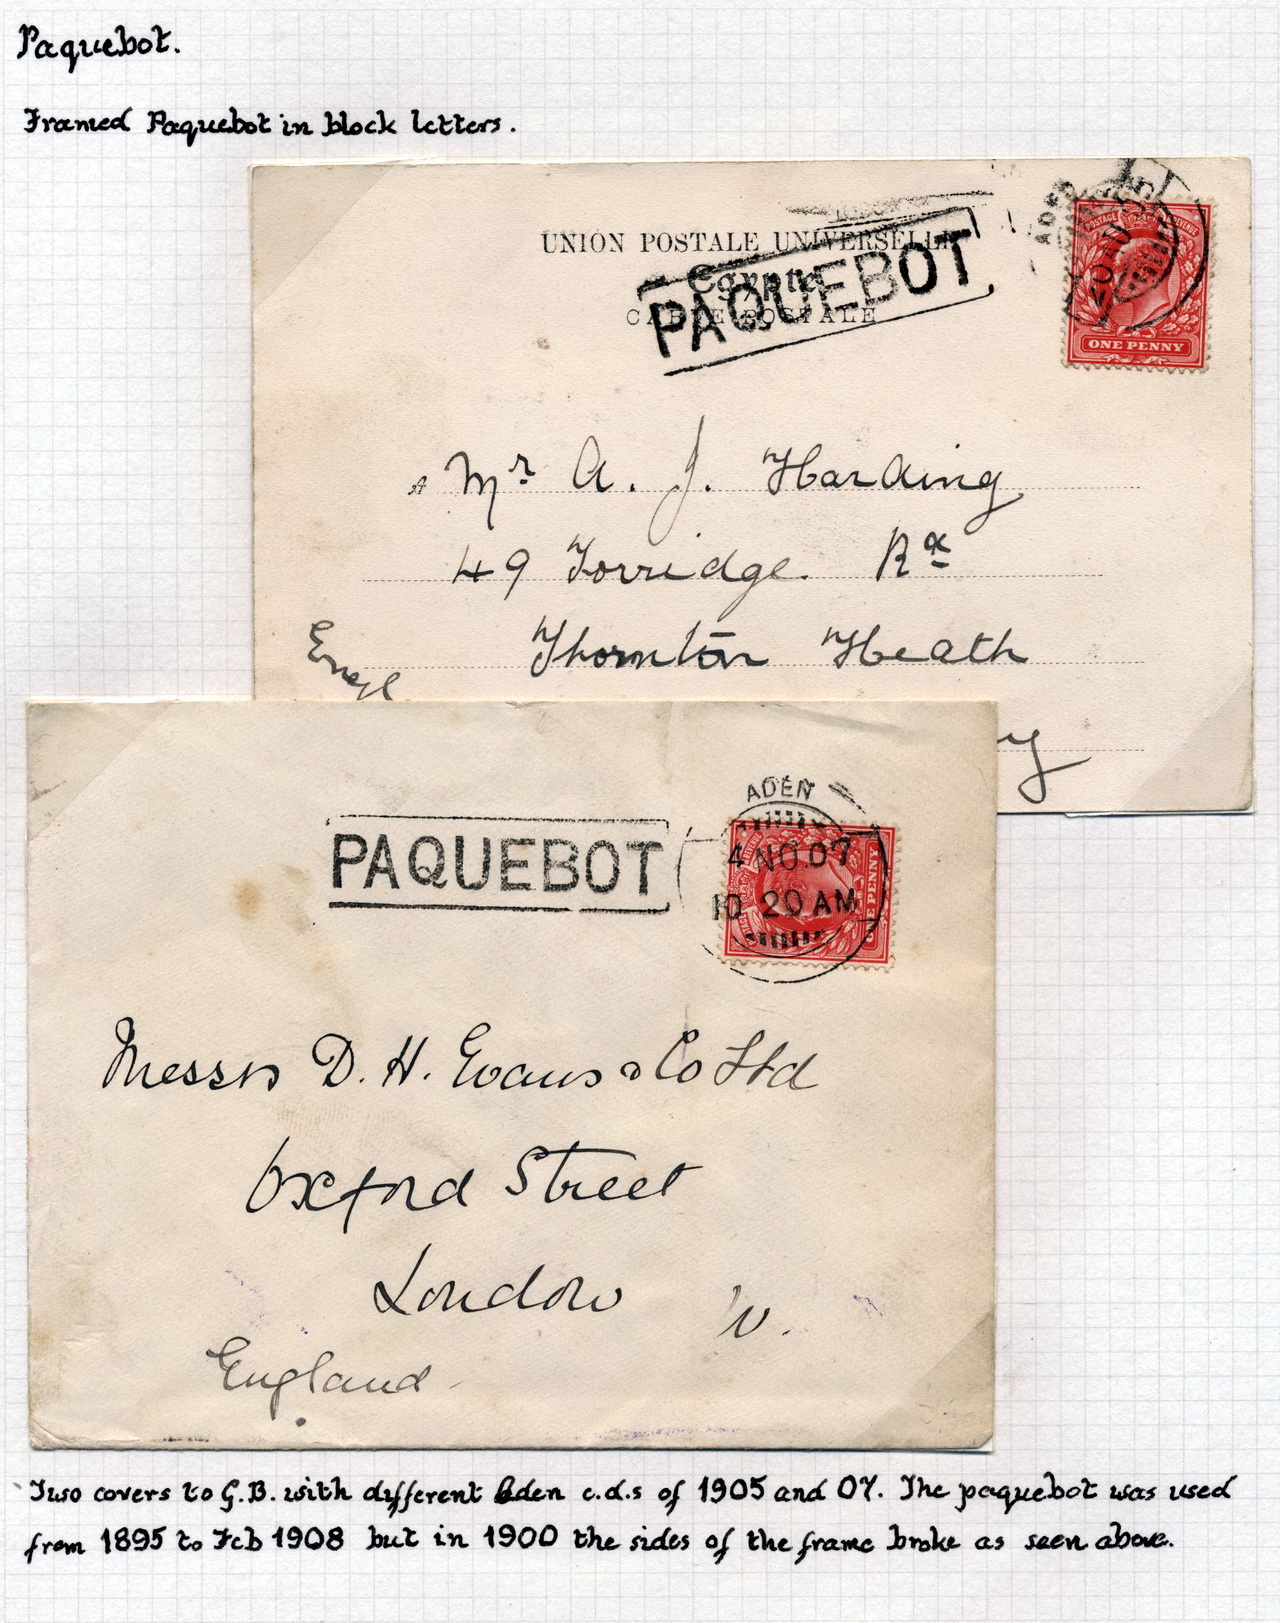 Paquebot.
Framed Paquebot in block letters.
UNION POSTALE UNIVERSELLE
Egypte
CARTE POSTALE
PAQUEBOT
ADEN
20
POSTAGE REVENUE
ONE PENNY
A Mr. A. J. Harding
49 Torridge. Rd
Thornton Heath
Engl
y
PAQUEBOT
ADEN
4 NO. 07
10 20 AM
REVENUE
ONE PENNY
Messrs D. H. Evans & Co Ltd
Oxford Street
London W.
England
Two covers to G.B. with different Aden c.d.s of 1905 and 07. The paquebot was used
from 1895 to Feb 1908 but in 1900 the sides of the frame broke as seen above.